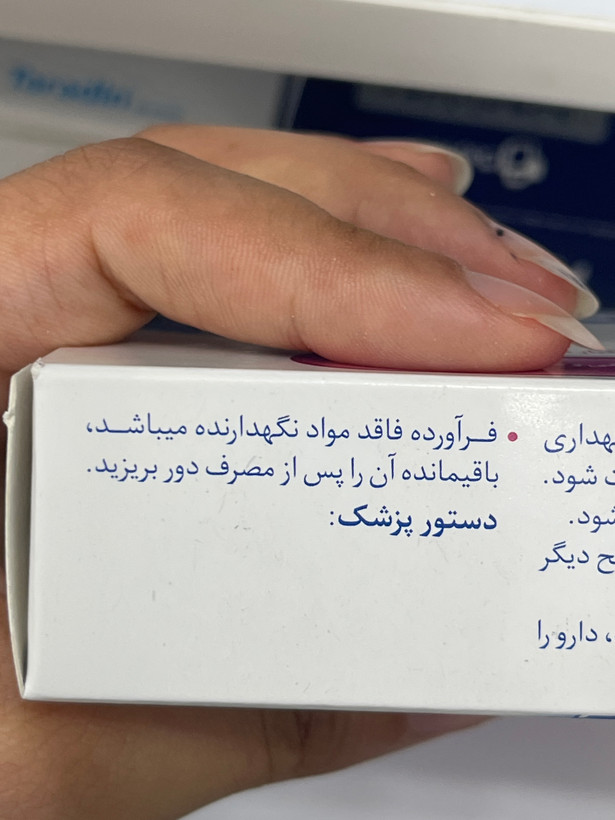 نهداری
ت شود.
شود.
ح دیگر
، دارو را
• فـرآورده فاقد مواد نگهدارنده میباشـد،
باقیمانده آن را پس از مصرف دور بریزید.
دستور پزشک: